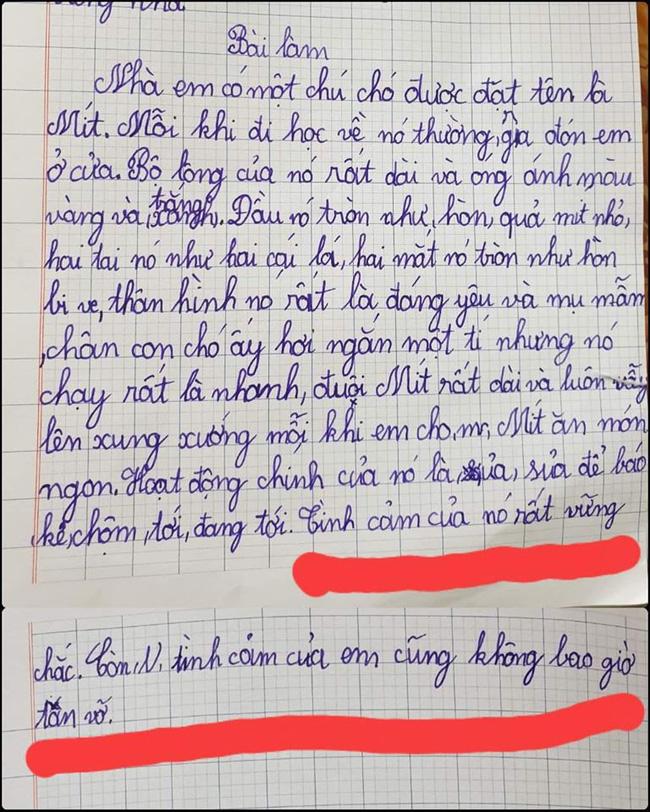 Bài làm
Nhà em có một chú chó được đặt tên là
Mít. Mỗi khi đi học về nó thường, gia đón em
ở cửa. Bộ lông của nó rất dài và ong ánh màu
vàng và trắng. Đầu nó tròn như, hòn, quả mít nhỏ,
hai tai nó như hai cái lá, hai mắt nó tròn như hòn
bi ve, thân hình nó rất là đáng yêu và mụ mẫm
, chân con chó ấy hơi ngắn một tí nhưng nó
chạy rất là nhanh, đuôi Mít rất dài và luôn vẫy
lên xung xướng mỗi khi em cho, Mít ăn món
ngon. Hoạt động chính của nó là, sủa, sủa để báo
kẻ, chộm, tới, đang tới. Tình cảm của nó rất vững
chắc. Còn, tình cảm của em cũng không bao giờ
tan vỡ.